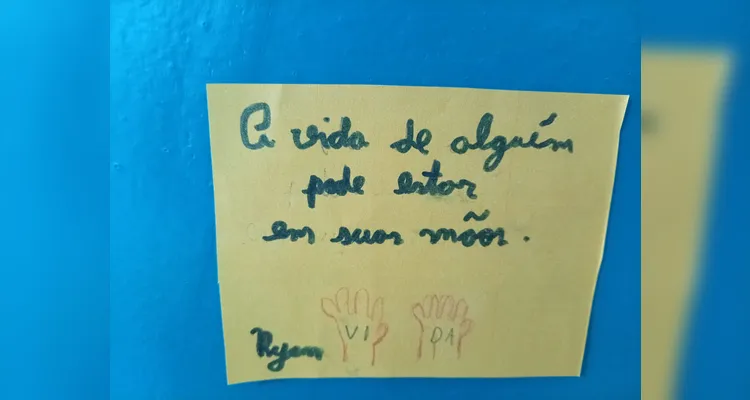 A vida de alguém
pode estar
em suas mãos.
Ryan VI DA